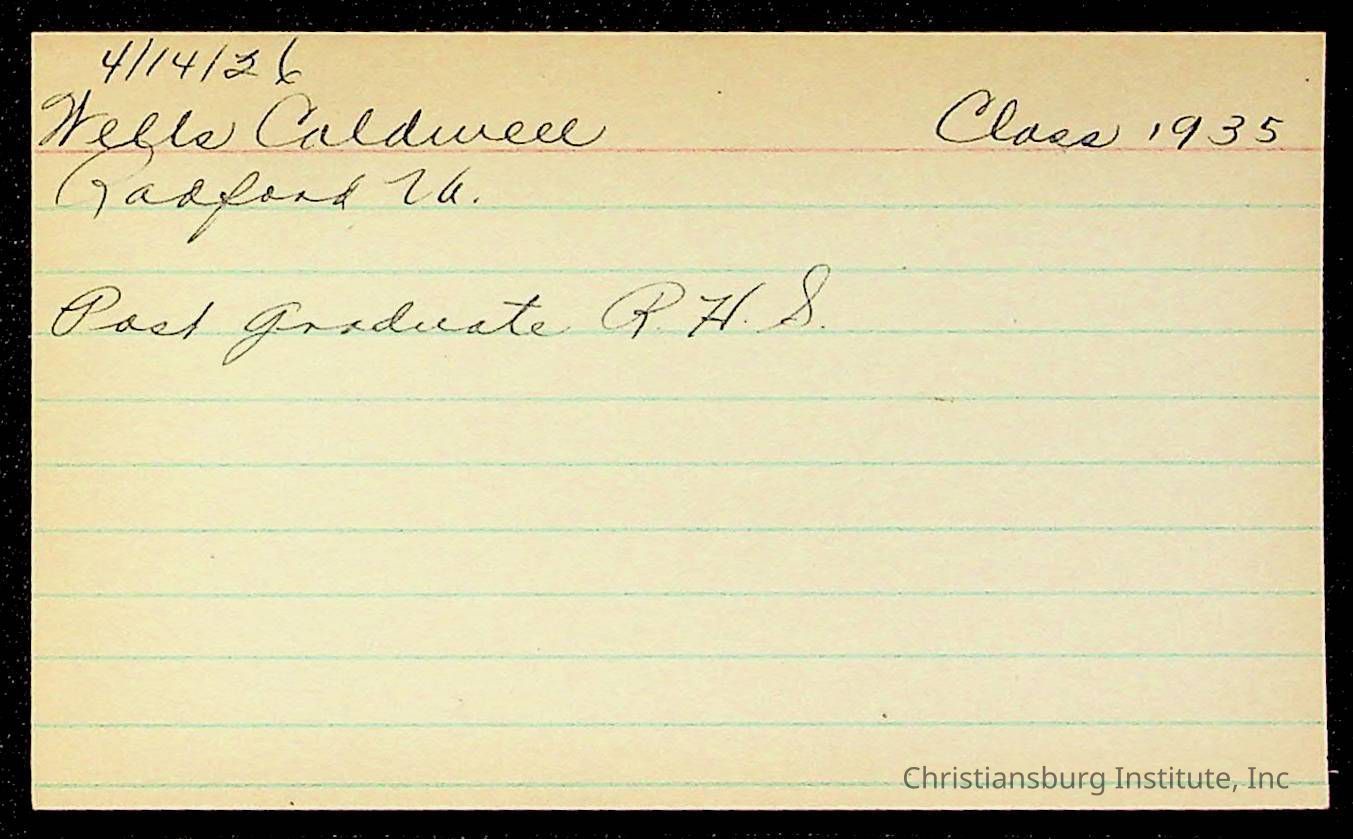 4/14/36
Wells Caldwell Class 1935
Radford Va.
Post graduate R. H. S.
Christiansburg Institute, Inc